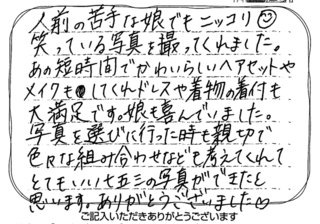 人前の苦手な娘でもニッコリ☺
笑っている写真を撮ってくれました。
あの短時間でかわいらしいヘアセットや
メイクもしてくれドレスや着物の着付も
大満足です。娘も喜んでいました。
写真を選びに行った時も親切で
色々な組み合わせなども考えてくれて
とてもいい七五三の写真ができたと
思います。ありがとうございました♡
ご記入いただきありがとうございます